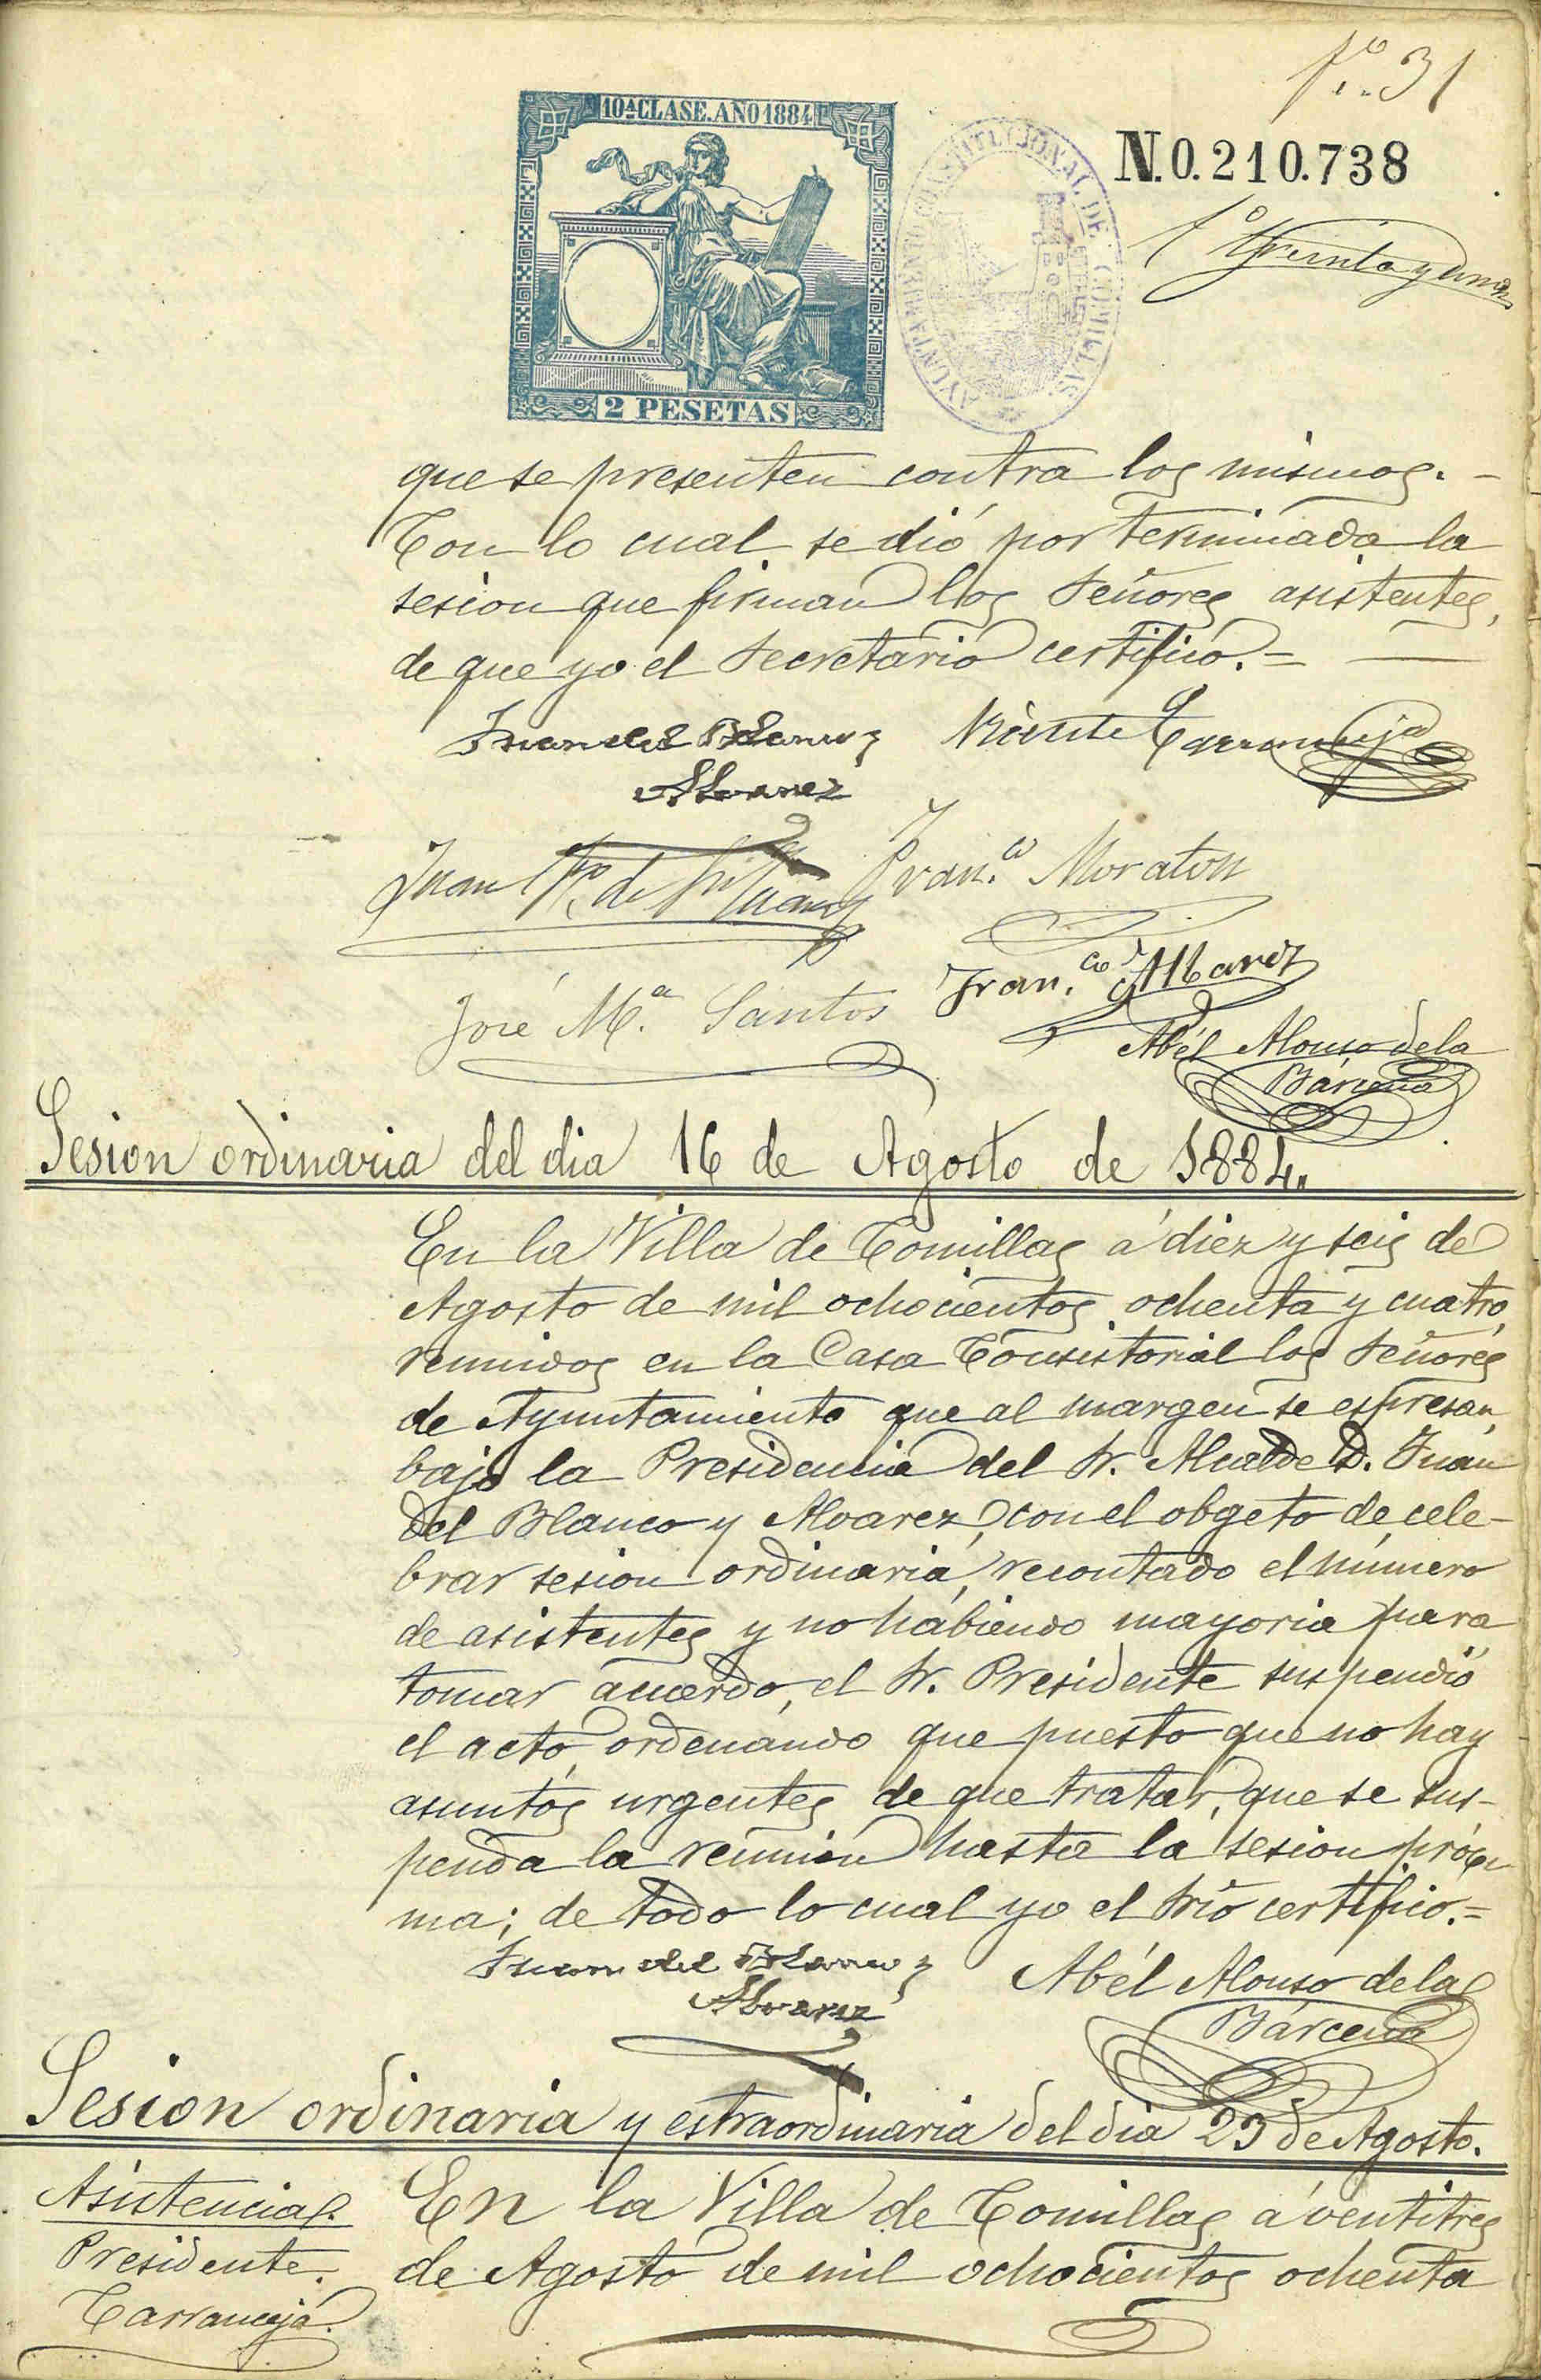 fº 31
10ª CLASE. AÑO 1884
N.0.210.738
AYUNTAMIENTO CONSTITUCIONAL DE COMILLAS
fº treinta y uno
2 PESETAS
que se presenten contra los mismos. -
Con lo cual se dió por terminada la
sesion que firman los Señores asistentes,
de que yo el Secretario certifico. =
Juan del Blanco y Vicente Carranceja
Alvarez
Juan de Franco. Moraton
José M.a Santos Franco. Albarez
Abél Alonso de la
Bárcena
Sesion ordinaria del dia 16 de Agosto de 1884.
En la Villa de Comillas á diez y seis de
Agosto de mil ochocientos ochenta y cuatro,
reunidos en la Casa Consistorial los Señores
de Ayuntamiento que al margen se espresan,
bajo la Presidencia del Sr. Alcalde D. Juan
del Blanco y Alvarez, con el obgeto de cele-
brar sesion ordinaria, recontado el número
de asistentes y no habiendo mayoria para
tomar acuerdo, el Sr. Presidente suspendió
el acto, ordenando que puesto que no hay
asuntos urgentes de que tratar, que se sus-
penda la reunion hasta la sesion próxi
ma; de todo lo cual yo el Srio certifico. =
Juan del Blanco y Abél Alonso de la
Alvarez Bárcena
Sesion ordinaria y estraordinaria del dia 23 de Agosto.
Asistencias.
Presidente.
Carranceja.
En la Villa de Comillas á ventitres
de Agosto de mil ochocientos ochenta